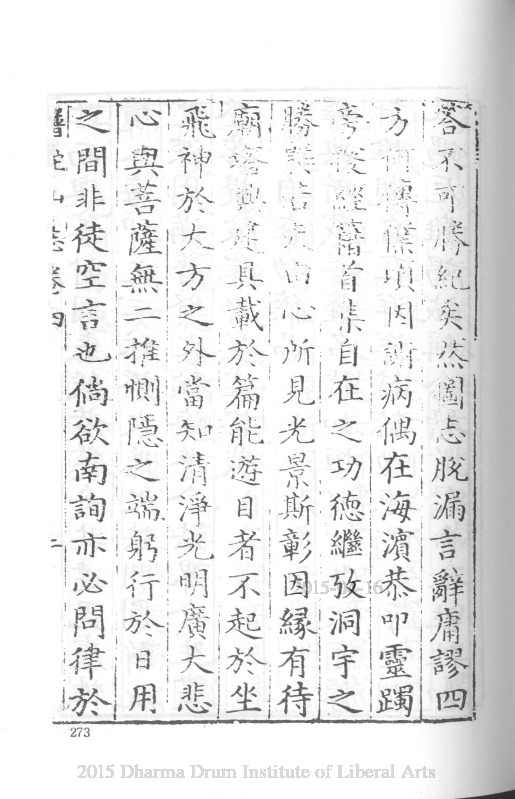 答不可勝紀矣然圖志脫漏言辭庸謬四
方何傳僕頃因謝病偶在海濱恭叩靈躅
旁搜經籍首集自在之功德繼攷洞宇之
勝若夫由心所見光景斯彰因緣有待
廟塔興建具載於篇能遊目者不起於坐
飛神於大方之外當知清淨光明廣大悲
心與菩薩無二推惻隱之端躬行於日用
之間非徒空言也倘欲南詢亦必問律於
普陀山志卷四 二
273
2015 Dharma Drum Institute of Liberal Arts